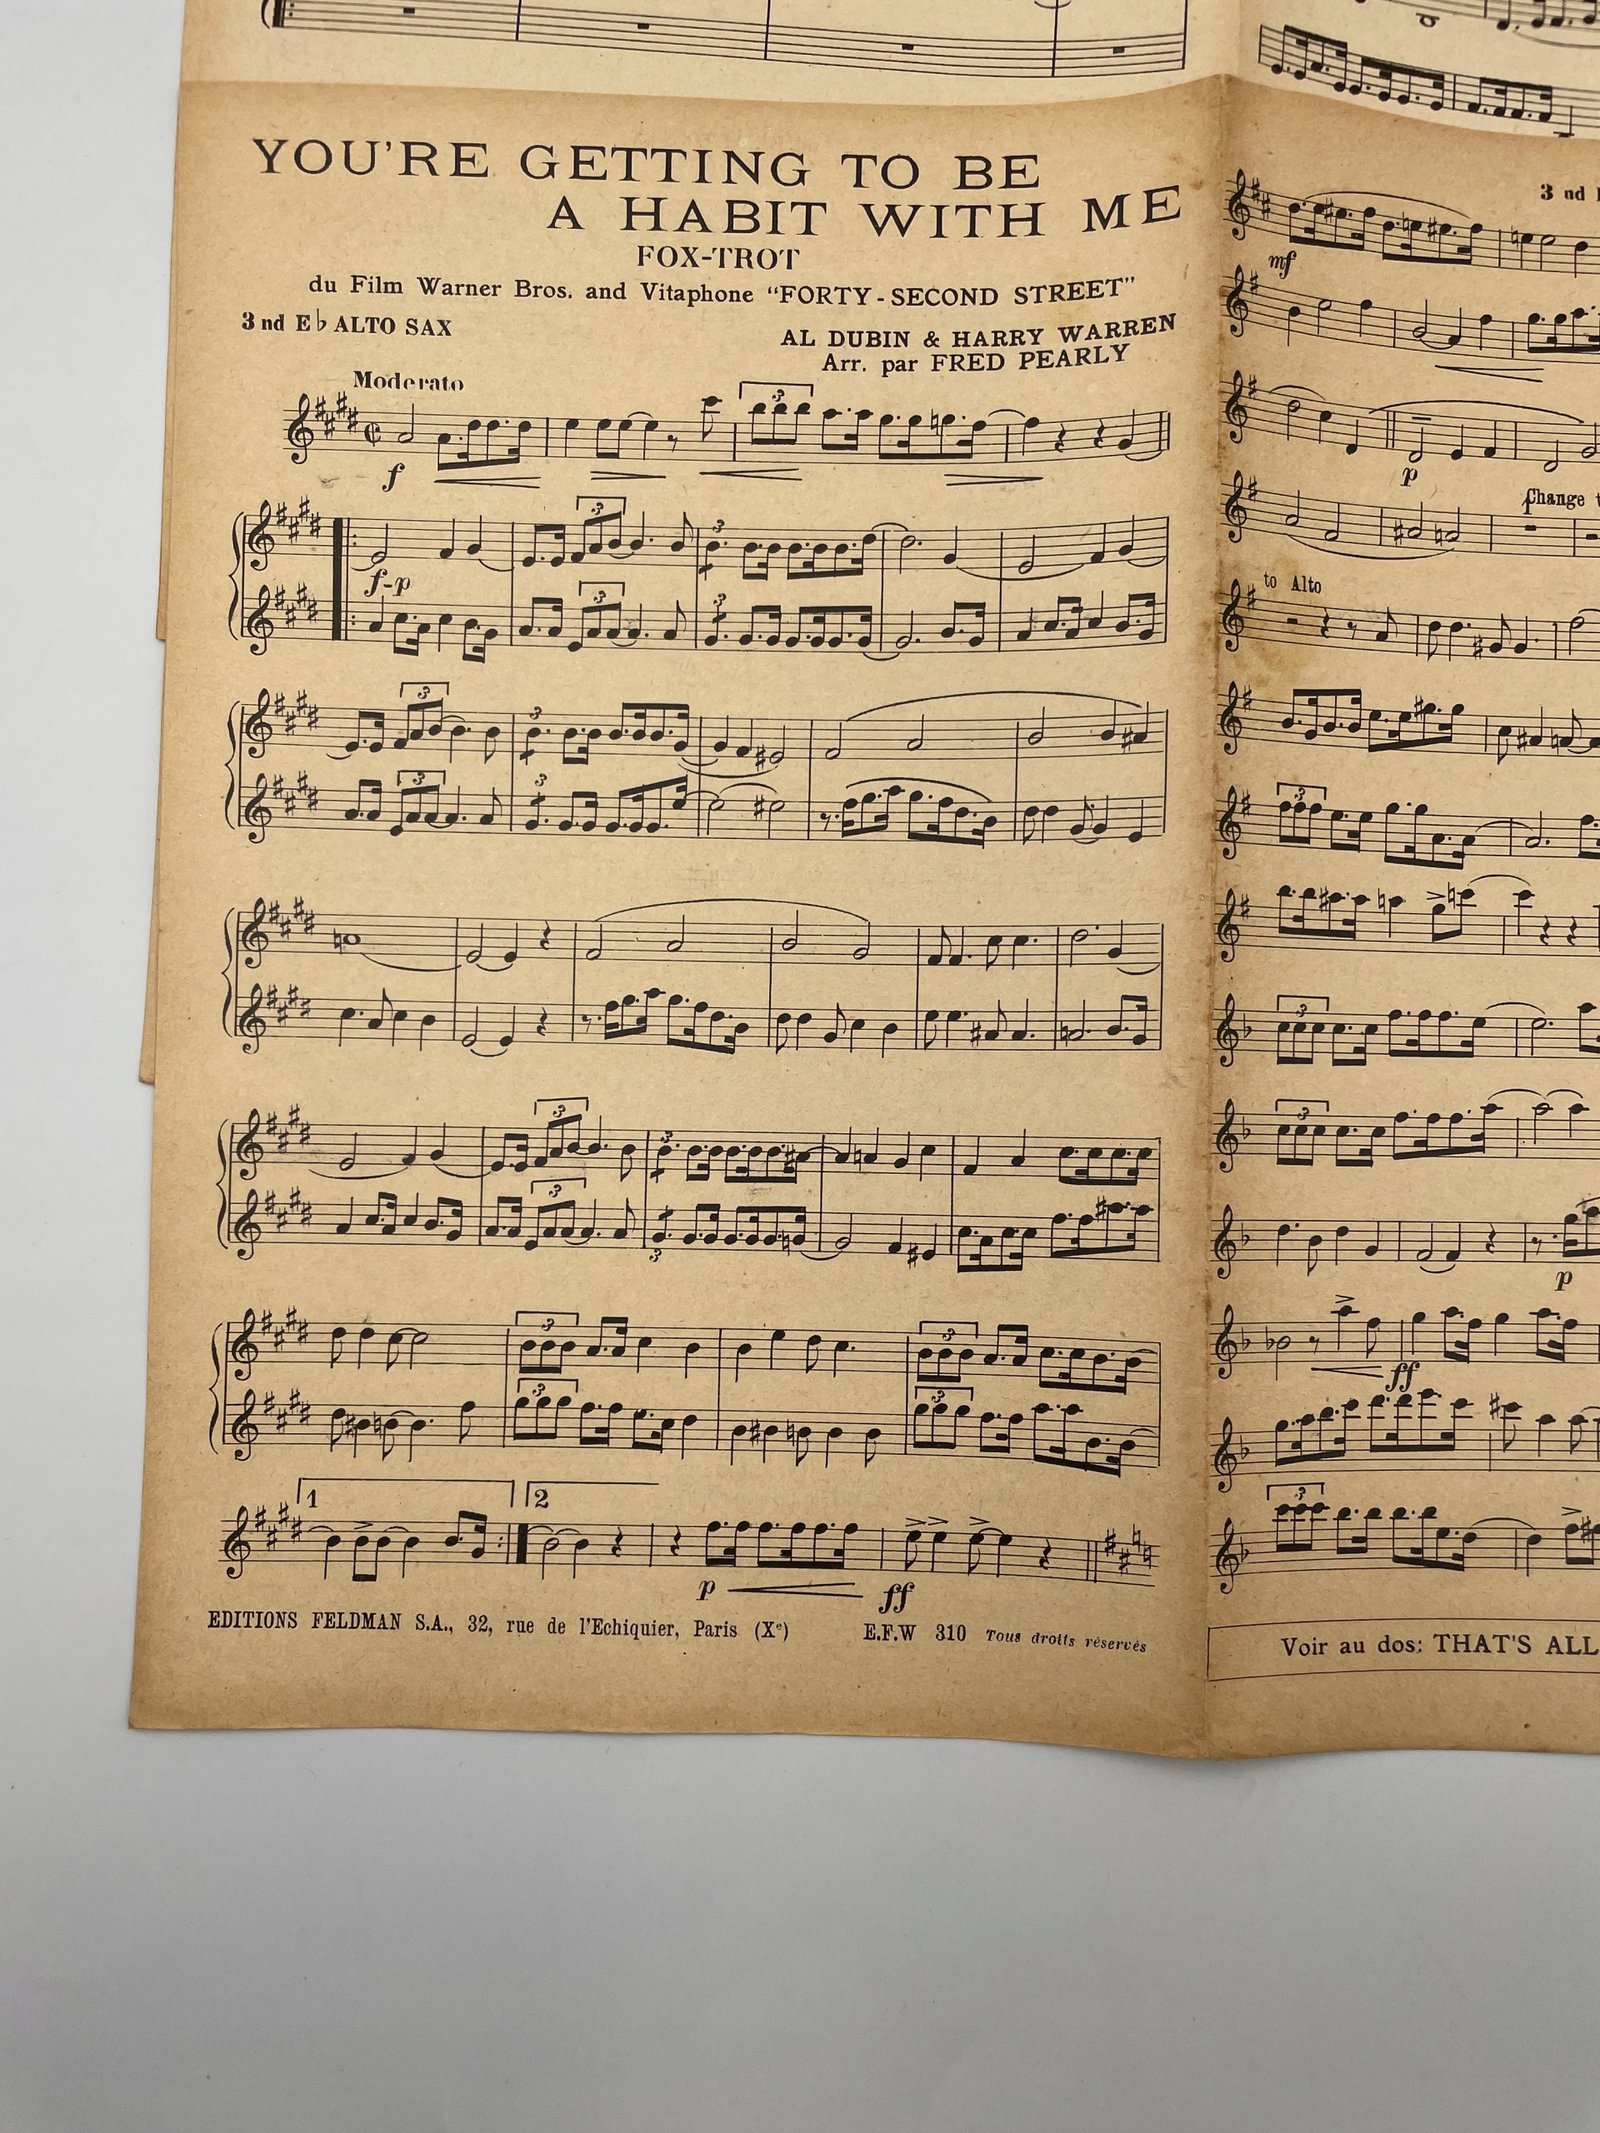 YOU'RE GETTING TO BE
A HABIT WITH ME
FOX-TROT
du Film Warner Bros. and Vitaphone "FORTY-SECOND STREET"
3nd E♭ ALTO SAX
AL DUBIN & HARRY WARREN
Arr. par FRED PEARLY
Moderato
3
f
3
3
f-p
3
3
3
3
3
3
3
3
3
3
3
3
3
3
1
2
p
ff
EDITIONS FELDMAN S.A., 32, rue de l'Echiquier, Paris (Xe)
E.F.W 310 Tous droits réservés
3 nd
mf
p
Change
to Alto
3
3
3
p
ff
3
Voir au dos: THAT'S ALL